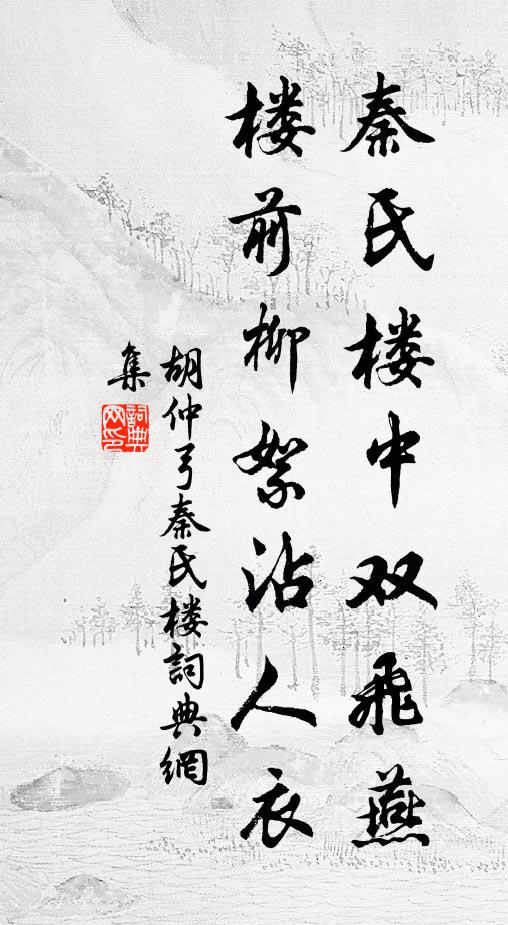 秦氏楼中双飞燕
楼前柳絮沾人衣
胡仲弓秦氏楼詞典網
集
詞典
网印